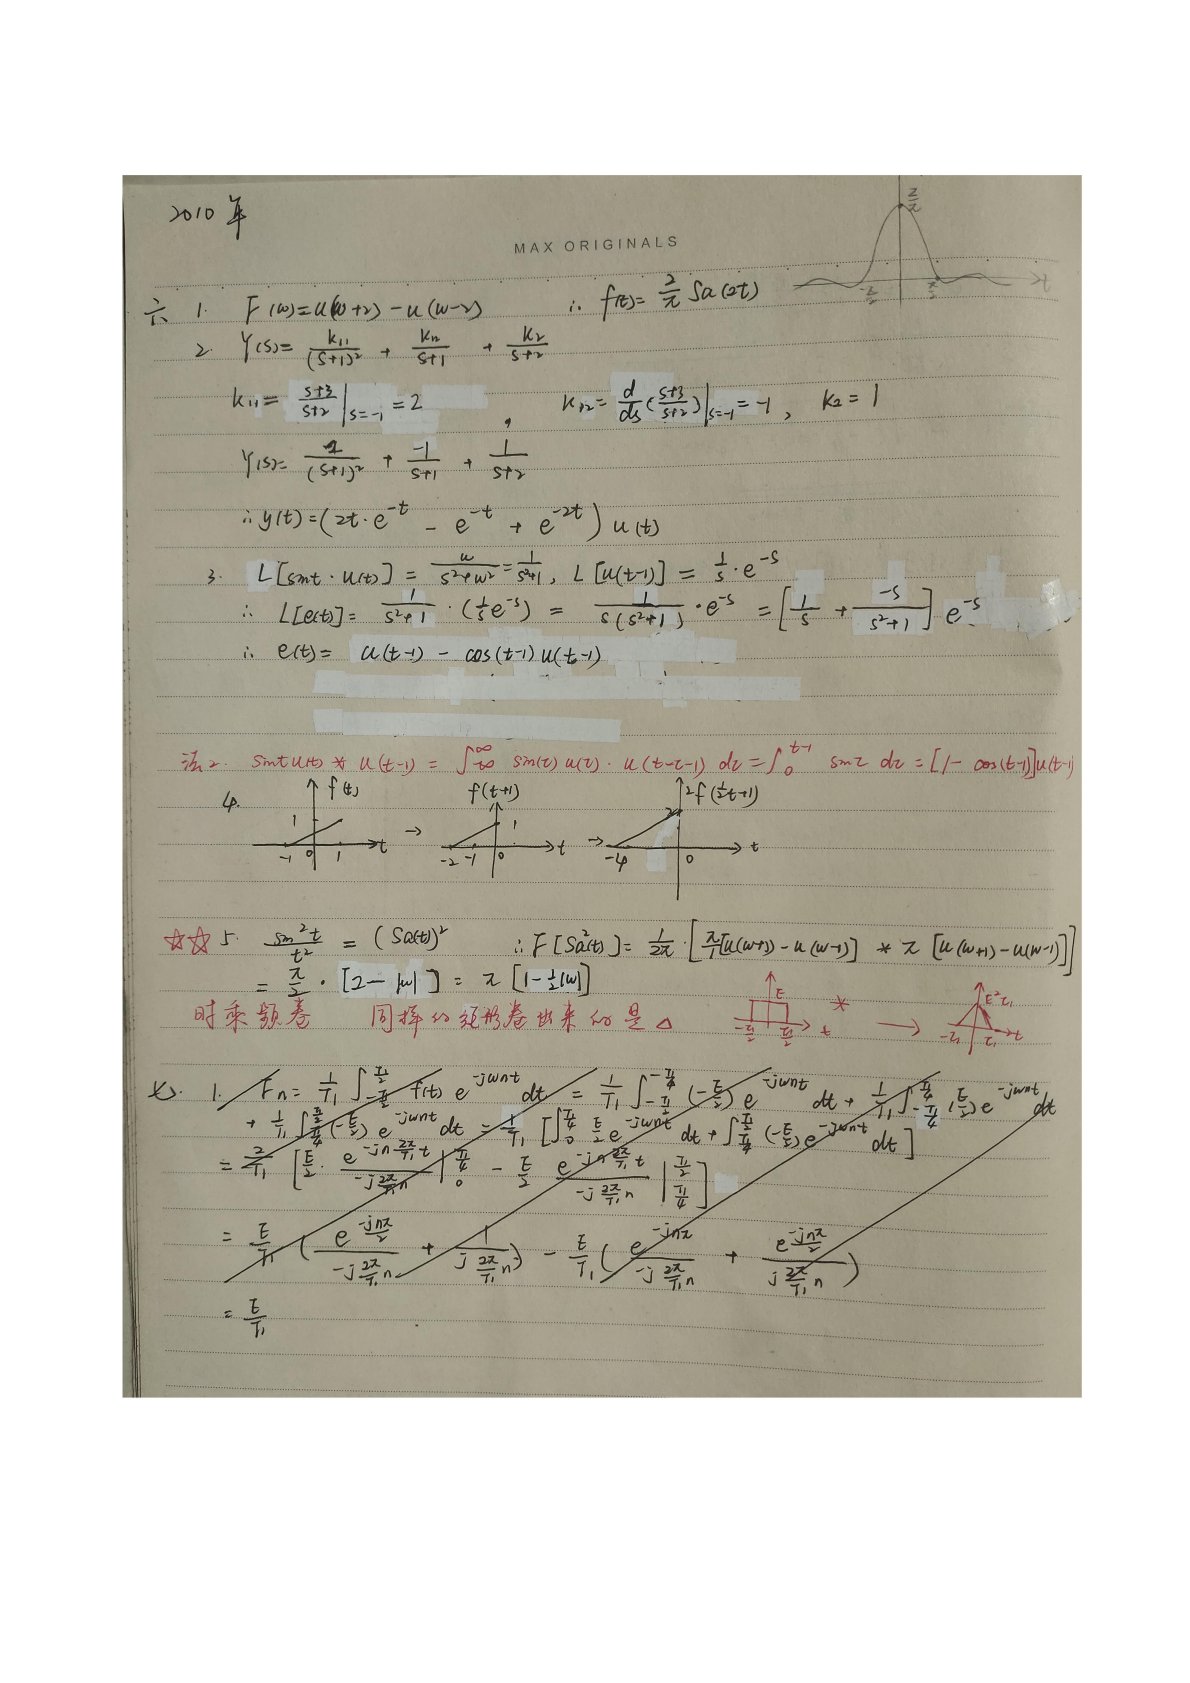 2010年
MAX ORIGINALS
2/π
-π/2 π/2 t
六 1. F(w)=u(w+2)-u(w-2) ∴ f(t)= 2/π Sa(2t)
2. Y(s)= k11/(s+1)² + k12/(s+1) + k2/(s+2)
k11= (s+3)/(s+2)|s=-1 =2 , k12= d/ds((s+3)/(s+2))|s=-1 =-1, k2=1
Y(s)= 2/(s+1)² + -1/(s+1) + 1/(s+2)
∴ y(t)=(2t·e^-t - e^-t + e^-2t) u(t)
3. L[sint·u(t)] = w/(s²+w²) = 1/(s²+1), L[u(t-1)] = 1/s·e^-s
∴ L[e(t)]= 1/(s²+1)·(1/s e^-s) = 1/(s(s²+1))·e^-s = [1/s + -s/(s²+1)] e^-s
∴ e(t)= u(t-1) - cos(t-1)u(t-1)
法2. sint u(t) * u(t-1) = ∫_-∞^∞ sin(τ)u(τ)·u(t-τ-1) dτ = ∫_0^t-1 sinτ dτ = [1-cos(t-1)]u(t-1)
4. f(t) f(t+1) 2f(½t+1)
1 → 1 → 2
-1 0 1 t -2 -1 0 t -4 0 t
☆☆ 5. sin²t/t² = (Sa(t))² ∴ F[Sa²(t)]= 1/2π·[π/1[u(w+1)-u(w-1)] * π[u(w+1)-u(w-1)]]
= π/2·[2-|w|] = π[1-½|w|]
时乘频卷 同样的矩形卷出来的是△
E * → E²τ1
-τ1/2 τ1/2 t -τ1 τ1 t
七. 1. Fn= 1/T1 ∫_-T1/2^T1/2 f(t) e^-jwnt dt = 1/T1 ∫_-T1/2^-T1/4 (-E/2) e^-jwnt dt + 1/T1 ∫_-T1/4^T1/4 (E/2) e^-jwnt dt
+ 1/T1 ∫_T1/4^T1/2 (-E/2) e^-jwnt dt = 1/T1 [∫_0^T1/4 E/2 e^-jwnt dt + ∫_T1/4^T1/2 (-E/2) e^-jwnt dt]
= 2/T1 [E/2 · e^(-jn 2π/T1 t)/(-j 2π/T1 n) |_0^T1/4 - E/2 e^(-jn 2π/T1 t)/(-j 2π/T1 n) |_T1/4^T1/2]
= E/T1 (e^(-jnπ/2)/(-j 2π/T1 n) + 1/(j 2π/T1 n)) - E/T1 (e^-jnπ/(-j 2π/T1 n) + e^(-jnπ/2)/(j 2π/T1 n))
= E/T1